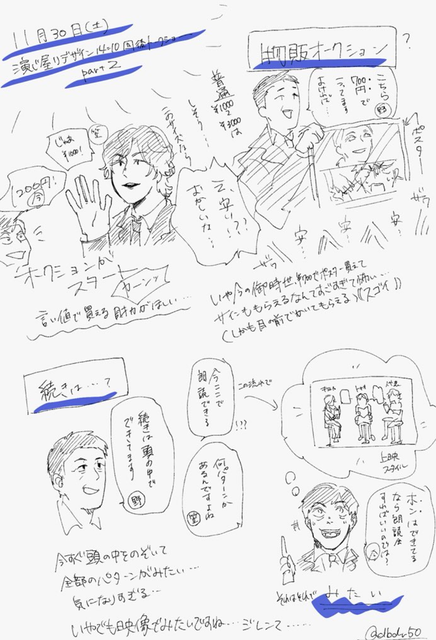 11月30日(土)
演じ屋リデザイン 14:10 回 トークショー
part 2
物販オークション
?
こちら
700円で
うってます
(野)
ポスター
普通
¥1000
¥3000は
しそう…
このサイズなら
え、安い!??
おかしいな…
じゃあ
¥1000!
1200円!
オークションが
スタート
カーンッ
ザワ
ザワ
安
安
言い値で買える財力がほしい…
いや今の御時世、¥1000でポスター買えて
サインももらえるなんてすごすぎて怖い…
(しかも目の前でかいてもらえる)《スゴイ》
続きは…?
続きは頭の中で
できてます
(野)
今ここで
朗読できる
!??
何パターンか
あるんですよね
この流れで
上映
スタイル
ホンはできてる
なら朗読会
すればいいのでは?
今すぐ頭の中をのぞいて
全部のパターンがみたい…
気になりすぎる…
それはそれで
みたい
いやでも映像でみたいですね… ジレンマ……